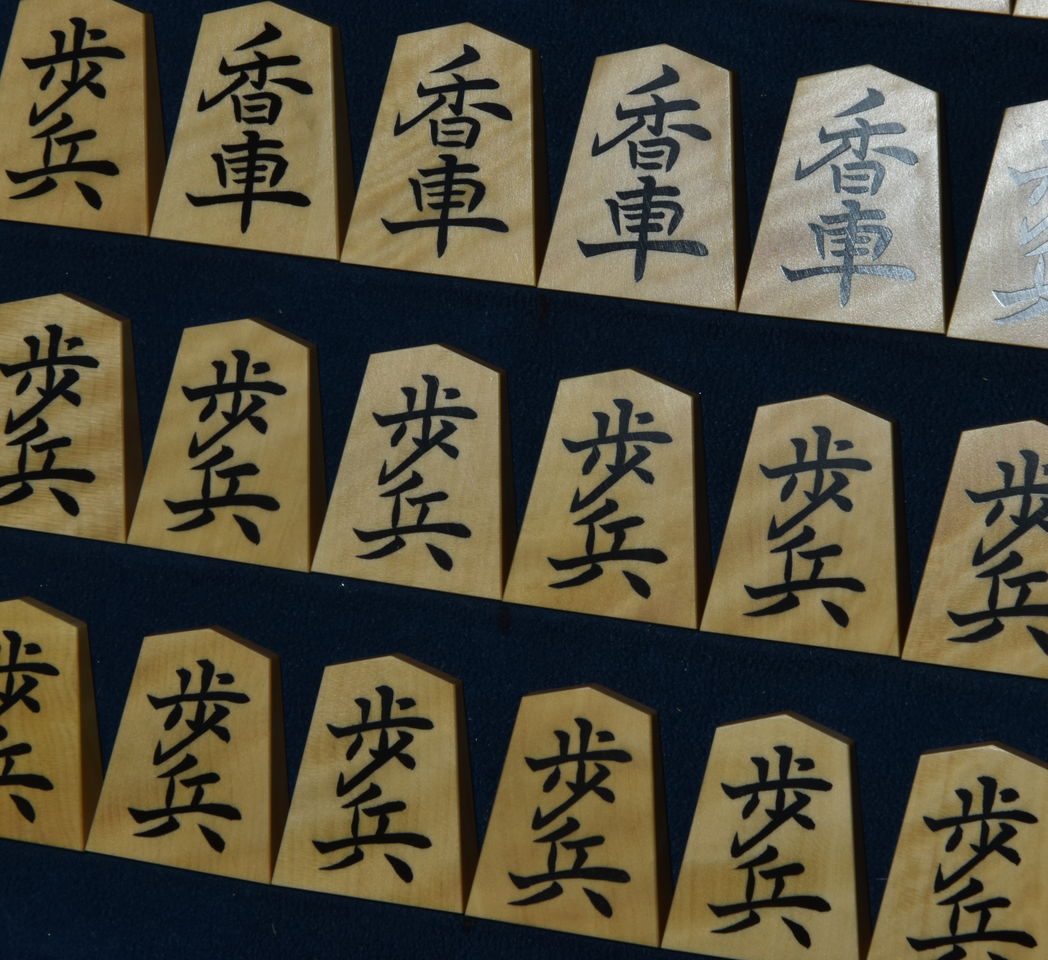 歩兵 香車 香車 香車 香車 歩兵
歩兵 歩兵 歩兵 歩兵 歩兵 歩兵
歩兵 歩兵 歩兵 歩兵 歩兵 歩兵